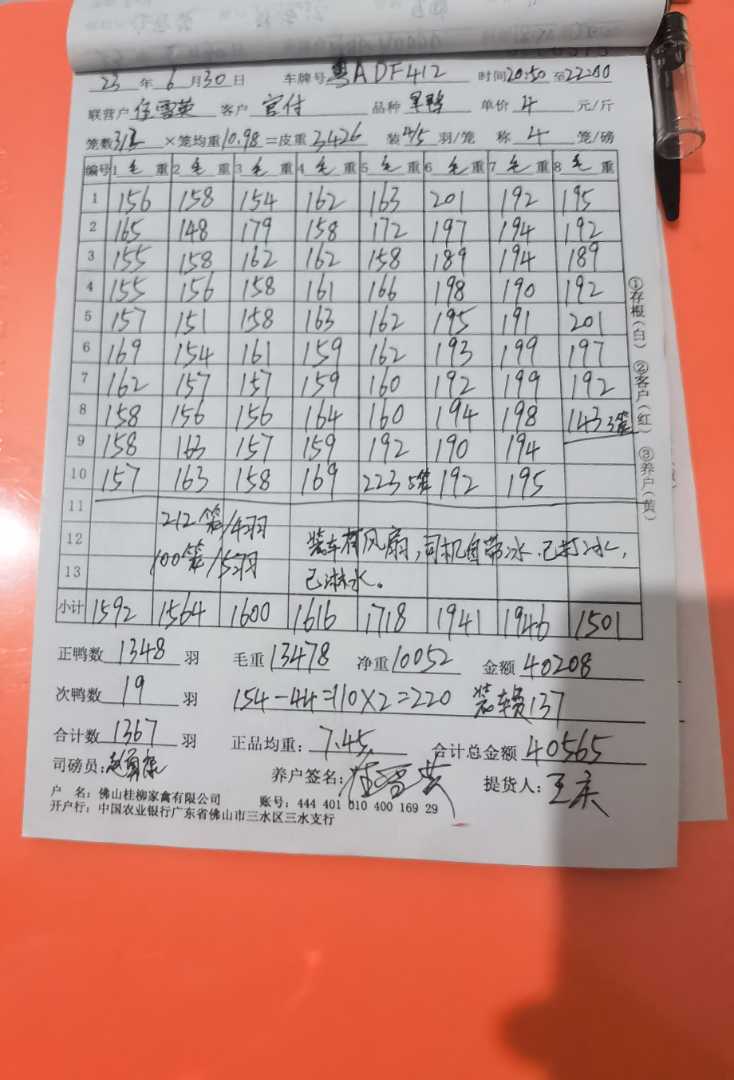 23 年 6 月 30 日 车牌号 粤ADF412 时间 20:50 至 22:00
联营户 任雪英 客户 官付 品种 黑鸭 单价 4 元/斤
笼数 312 ×笼均重 10.98 =皮重 3426 装 4/5 羽/笼 称 4 笼/磅
编号 1 毛 重 2 毛 重 3 毛 重 4 毛 重 5 毛 重 6 毛 重 7 毛 重 8 毛 重
1 156 158 154 162 163 201 192 195
2 165 148 179 158 172 197 194 192
3 155 158 162 162 158 189 194 189
4 155 156 158 161 166 198 190 192
5 157 151 158 163 162 195 191 201
6 169 154 161 159 162 193 199 197
7 162 157 157 159 160 192 199 192
8 158 156 156 164 160 194 198 143 3笼
9 158 163 157 159 192 190 194
10 157 163 158 169 223 5笼 192 195
11 212笼/4羽
12 100笼/5羽 装车有风扇,司机自带冰.已打冰,
13 已淋水。
小计 1592 1564 1600 1616 1718 1941 1946 1501
正鸭数 1348 羽 毛重 13478 净重 10052 金额 40208
次鸭数 19 羽 154-44=110×2=220 装车费137
合计数 1367 羽 正品均重: 7.45 合计总金额 40565
司磅员: 养户签名: 任雪英 提货人: 王庆
户 名: 佛山桂柳家禽有限公司 账号: 444 401 010 400 169 29
开户行: 中国农业银行广东省佛山市三水区三水支行
①存根(白) ②客户(红) ③养户(黄)